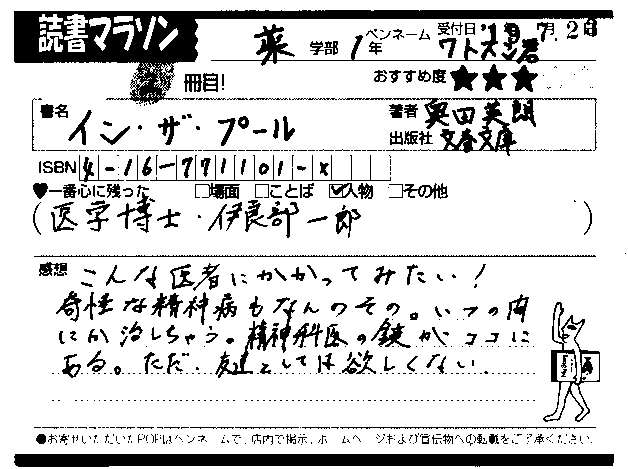 読書マラソン
薬 学部 1年
ペンネーム ワトスン君
受付日
冊目!
おすすめ度 ★★★
書名 イン・ザ・プール
著者 奥田英朗
出版社 文春文庫
ISBN 4-16-771101-x
♥一番心に残った □場面 □ことば ☑人物 □その他
(医学博士・伊良部一郎)
感想 こんな医者にかかってみたい!
奇怪な精神病もなんのその。いつの間
にか治しちゃう。精神科医の鏡がココに
ある。ただ、友達としては欲しくない。
●お寄せいただいたPOPはペンネームで、店内で掲示、ホームページおよび宣伝物への転載をご了承ください。